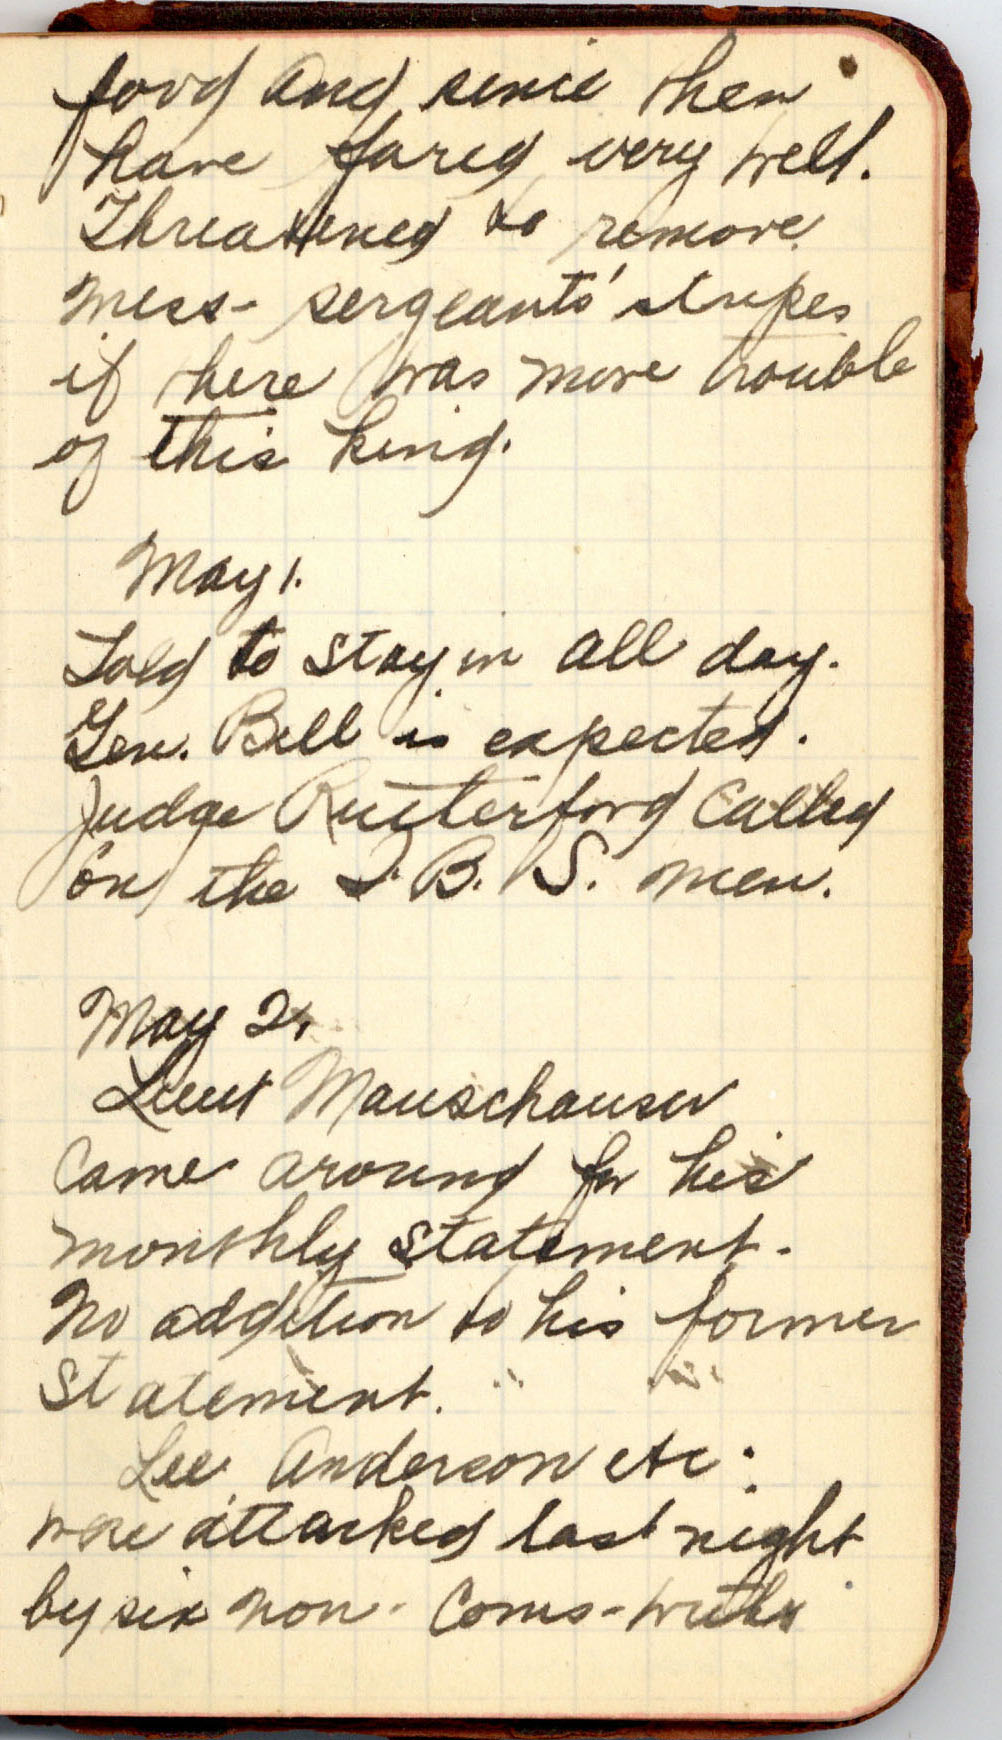 food and since then
have fared very well.
Threatened to remove
mess-sergeants' stripes
if there was more trouble
of this kind.
May 1.
Told to stay in all day.
Gen. Bell is expected.
Judge Rutterford called
on the I. B. S. men.
May 2.
Lieut Mauschauser
came around for his
monthly statement.
No addition to his former
statement.
Lee, Anderson etc.
were attacked last night
by six non-coms-with